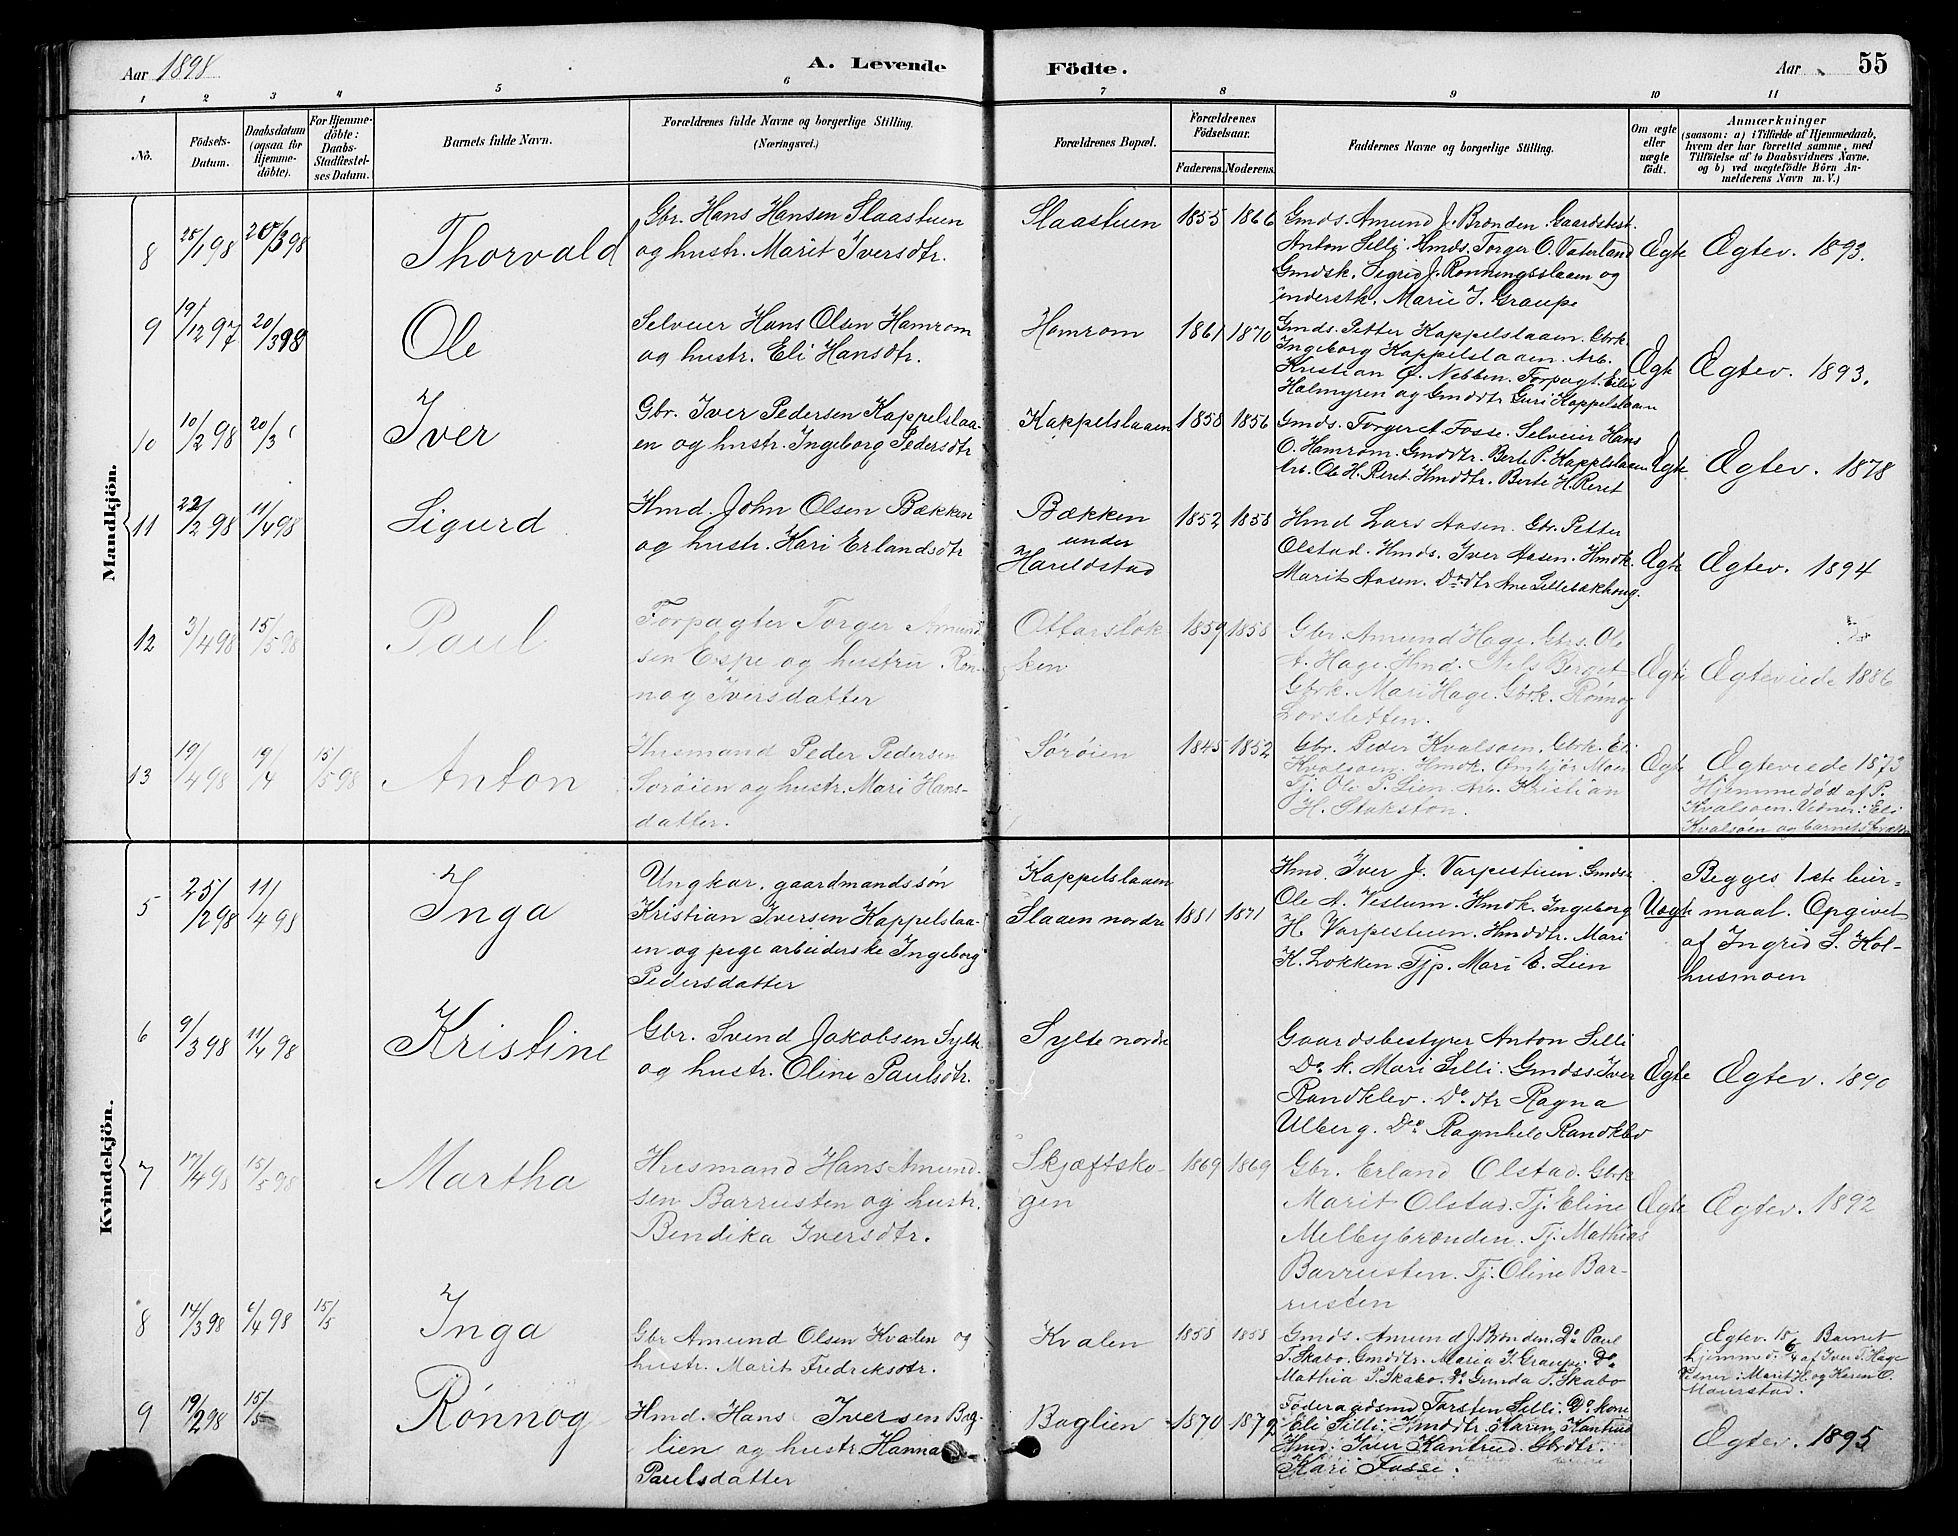 Aar 1898
A. Levende Födte.
Aar
55
1 2 3 4 5 6 7 8 9 10 11
No.
Födsels-Datum.
Daabsdatum (ogsaa for Hjemmedöbte).
For Hjemmedöbte: Daabs-Stadfæstelses Datum.
Barnets fulde Navn.
Forældrenes fulde Navne og borgerlige Stilling. (Næringsvei.)
Forældrenes Bopæl.
Forældrenes Födselsaar.
Faderens. Moderens.
Faddernes Navne og borgerlige Stilling.
Om ægte eller uægte födt.
Anmærkninger
(saasom: a) i Tilfælde af Hjemmedaab,
hvem der har forrettet samme, med
Tilföielse af to Daabsvidners Navne.
og b) ved uægtefödte Börn Anmelderens Navn m. V.)
Mandkjön.
8 28/1 98 20/3 98 Thorvald
Gbr. Hans Hansen Slaastuen
og hustr. Marit Iversdtr.
Slaastuen 1855 1866
Gmds. Amund J. Brønden. Gaardsbest.
Anton Silli. Hmds. Torger O. Vaterland
Gmdsk. Sigrid J. Rønningsslaaen og
inderstk. Marie J. Graupe
Ægte Ægtev. 1893.
9 19/12 97 20/3 98 Ole
Selveier Hans Olsen Hamrom
og hustr. Eli Hansdtr.
Hamrom 1861 1870
Gmds. Petter Kappelslaaen. Gbrk.
Ingeborg Kappelslaaen. Arb.
Kristian Ø. Nebben. Forpagt. Eilif
Halmyren og Gmddtr Guri Kappelslaaen
Ægte Ægtev. 1893.
10 10/2 98 20/3 Iver
Gbr. Iver Pedersen Kappelslaa-
en og hustr. Ingeborg Pedersdtr
Kappelslaaen 1858 1856
Gmds. Torger A. Fosse. Selveier Hans
O. Hamrom. Gmddtr. Berte P. Kappelslaaen
Arb. Ole H. Reret. Hmddtr. Berte H. Reret
Ægte Ægtev. 1878
11 22/2 98 11/4 98 Sigurd
Hmd. John Olsen Bækken
og hustr. Kari Erlandsdtr
Bækken
under
Harildstad
1852 1858
Hmd Lars Aasen. Gbr. Petter
Olstad. Hmds. Iver Aasen. Hmdk.
Marit Aasen. Do dtr Ane Lillebækhaug.
Ægte Ægtev. 1894
12 3/4 98 15/5 98 Paul
Forpagter Torger Amund
sen Espe og hustru Røn-
nog Iversdatter
Ottarsløk
ken
1859 1858
Gbr. Amund Hage. Gbrs. Ole
A. Hage. Hmd. Nils Berget
Gbrk. Mari Hage. Gbrk. Rønnog
Lovsletten.
Ægte Ægteviede 1886
13 19/4 98 19/4 15/5 98 Anton
Husmand Peder Pedersen
Sørøien og hustr. Mari Hans-
datter.
Sørøien 1845 1852
Gbr. Peder Kvalsøen. Gbrk. Eli
Kvalsøen. Hmdk.
Tj. Ole P. Lien. Arb. Kristian
H. Stokston.
Ægte Ægteviede 1873
Hjemmedøbt af P.
Kvalsøen. Vidner: Eli
Kvalsøen og barnets
Kvindekjön.
5 25/2 98 11/4 98 Inga
Ungkar. gaardmandssøn
Kristian Iversen Kappelslaa-
en og pige arbeiderske Ingeborg
Pedersdatter
Kappelslaaen
Slaaen nordre 1881 1871
Hmd. Iver J. Varpestuen. Gmds.
Ole A. Vestum. Hmdk. Ingeborg
H. Varpestuen. Hmddtr. Mari
K. Løkken. Tjp. Mari E. Lien
Uægte
Begges 1ste leier-
maal. Opgivet
af Ingrid S. Kol-
husmoen
6 9/3 98 11/4 98 Kristine
Gbr. Svend Jakobsen Sylte
og hustr. Oline Paulsdtr.
Sylte nordre
Gaardsbestyrer Anton Silli
Do k. Mari Silli. Gmdss. Iver
Randklev. Do dtr Ragna
Ulberg. Do Ragnhild Randklev
Ægte Ægtev. 1890
7 17/4 98 15/5 98 Martha
Husmand Hans Amund-
sen Barrusten og hustr.
Bendika Iversdtr.
Skjæftsko-
gen
1869 1869
Gbr. Erland Olstad. Gbrk
Marit Olstad. Tj. Eline
Melbybrænden. Tj. Mathias
Barrusten. Tj. Oline Bar-
rusten
Ægte Ægtev. 1892
8 14/3 98 6/4 98 15/5 Inga
Gbr Amund Olsen Kvalen og
hustr. Marit Fredriksdtr.
Kvalen 1858 1858
Gmds. Amund J. Brønden. Do Paul
T. Skabo. Gmddtr. Maria J. Graupe. Do
Mathia P. Skabo. Do Gunda T. Skabo
Ægtev. 18 Barnet
hjemmed. 6/4 af Iver T. Hage
Vidner: Marit H. og Karen O.
Maurstad.
9 19/2 98 15/5 Rønnog
Hmd. Hans Iversen Bag-
lien og hustr. Hanna
Paulsdatter
Baglien 1870 1872
Føderaadsmd Torsten Silli. Do kone
Eli Silli. Hmddtr. Karen Kantrud
Hmd. Iver Kantrud. Gbrdtr.
Kari Fosse.
Ægtev. 1895